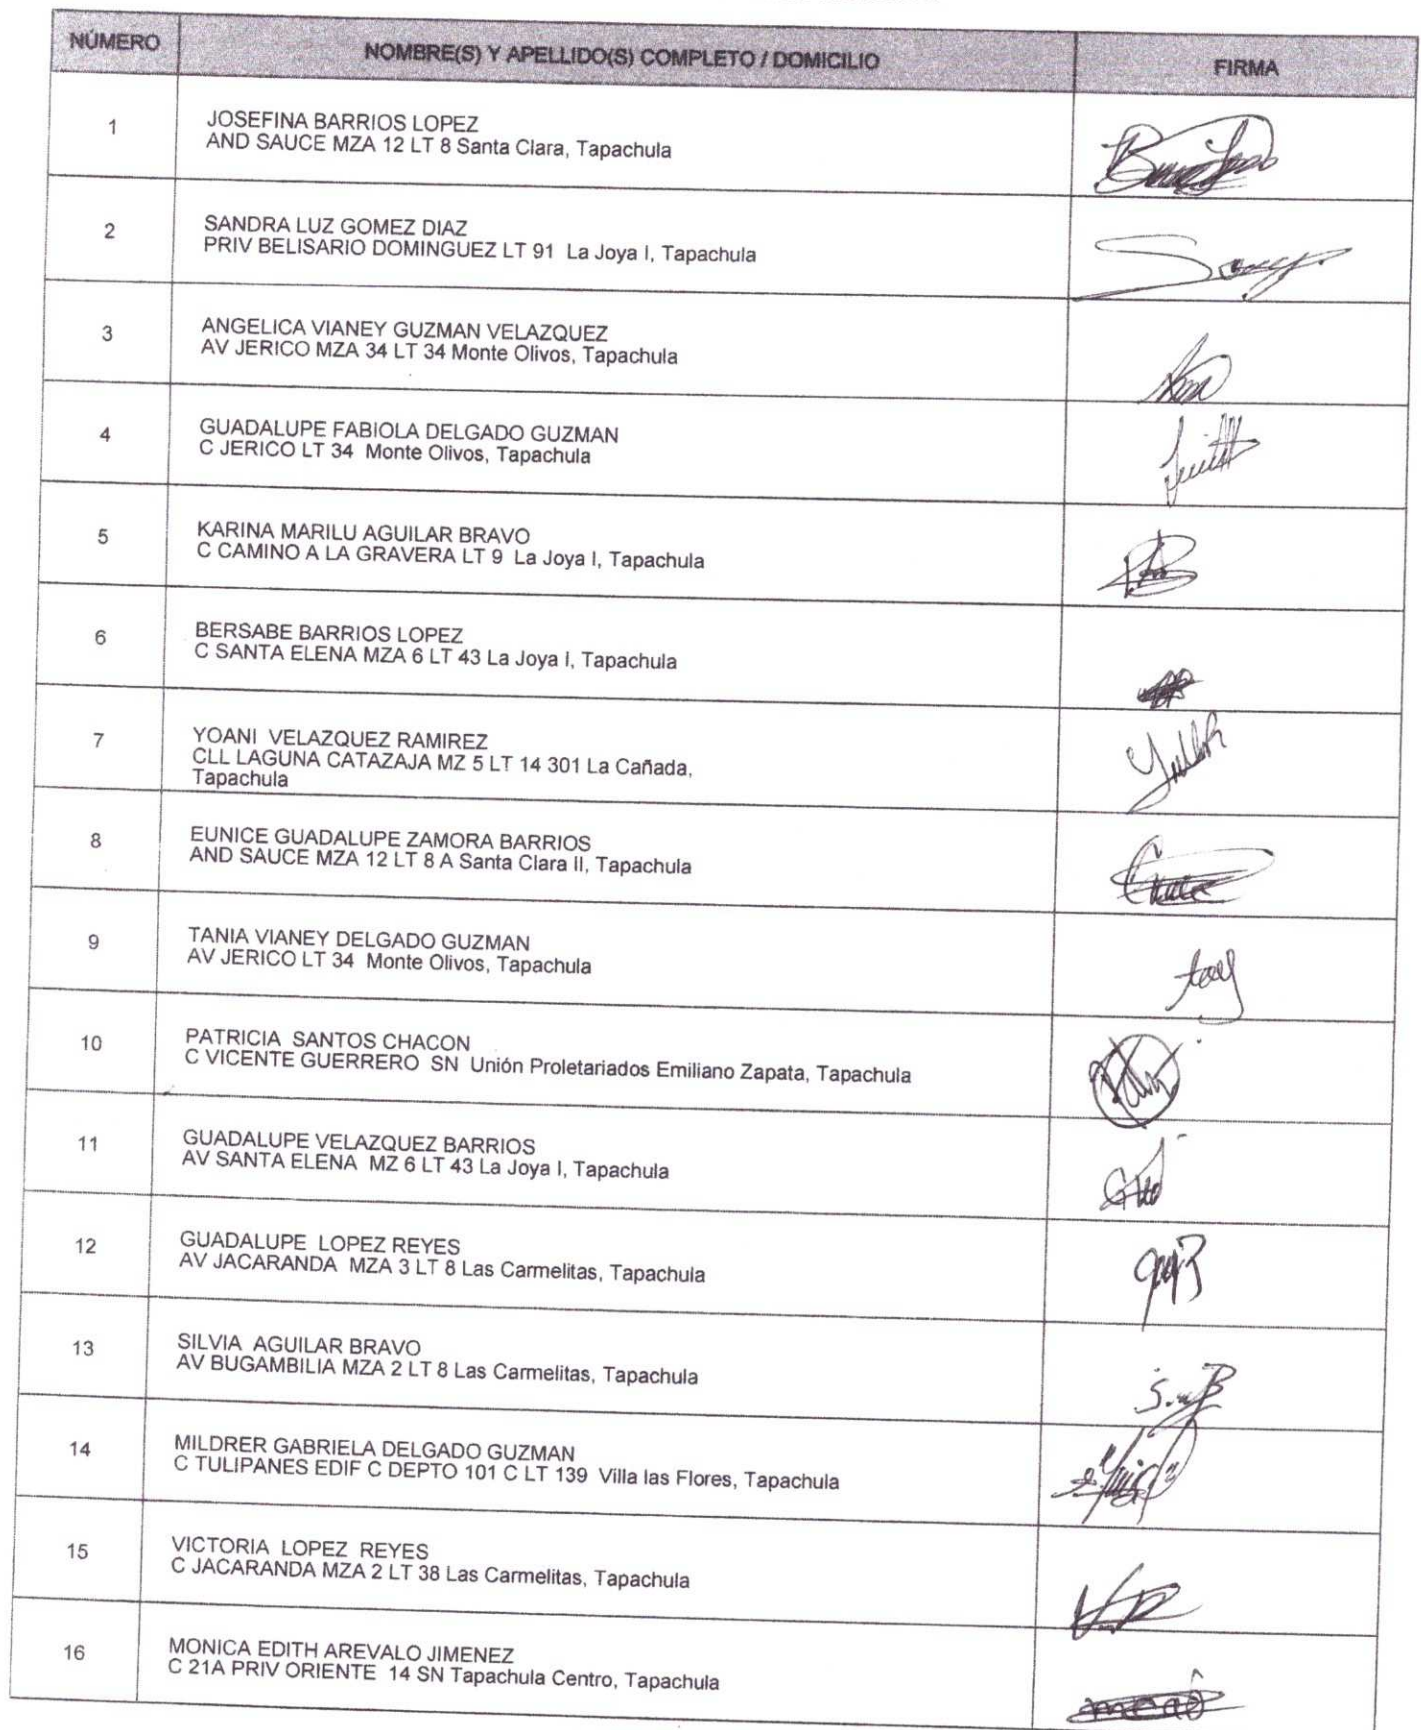 NÚMERO NOMBRE(S) Y APELLIDO(S) COMPLETO / DOMICILIO FIRMA
1 JOSEFINA BARRIOS LOPEZ
AND SAUCE MZA 12 LT 8 Santa Clara, Tapachula
2 SANDRA LUZ GOMEZ DIAZ
PRIV BELISARIO DOMINGUEZ LT 91 La Joya I, Tapachula
3 ANGELICA VIANEY GUZMAN VELAZQUEZ
AV JERICO MZA 34 LT 34 Monte Olivos, Tapachula
4 GUADALUPE FABIOLA DELGADO GUZMAN
C JERICO LT 34 Monte Olivos, Tapachula
5 KARINA MARILU AGUILAR BRAVO
C CAMINO A LA GRAVERA LT 9 La Joya I, Tapachula
6 BERSABE BARRIOS LOPEZ
C SANTA ELENA MZA 6 LT 43 La Joya I, Tapachula
7 YOANI VELAZQUEZ RAMIREZ
CLL LAGUNA CATAZAJA MZ 5 LT 14 301 La Cañada,
Tapachula
8 EUNICE GUADALUPE ZAMORA BARRIOS
AND SAUCE MZA 12 LT 8 A Santa Clara II, Tapachula
9 TANIA VIANEY DELGADO GUZMAN
AV JERICO LT 34 Monte Olivos, Tapachula
10 PATRICIA SANTOS CHACON
C VICENTE GUERRERO SN Unión Proletariados Emiliano Zapata, Tapachula
11 GUADALUPE VELAZQUEZ BARRIOS
AV SANTA ELENA MZ 6 LT 43 La Joya I, Tapachula
12 GUADALUPE LOPEZ REYES
AV JACARANDA MZA 3 LT 8 Las Carmelitas, Tapachula
13 SILVIA AGUILAR BRAVO
AV BUGAMBILIA MZA 2 LT 8 Las Carmelitas, Tapachula
14 MILDRER GABRIELA DELGADO GUZMAN
C TULIPANES EDIF C DEPTO 101 C LT 139 Villa las Flores, Tapachula
15 VICTORIA LOPEZ REYES
C JACARANDA MZA 2 LT 38 Las Carmelitas, Tapachula
16 MONICA EDITH AREVALO JIMENEZ
C 21A PRIV ORIENTE 14 SN Tapachula Centro, Tapachula